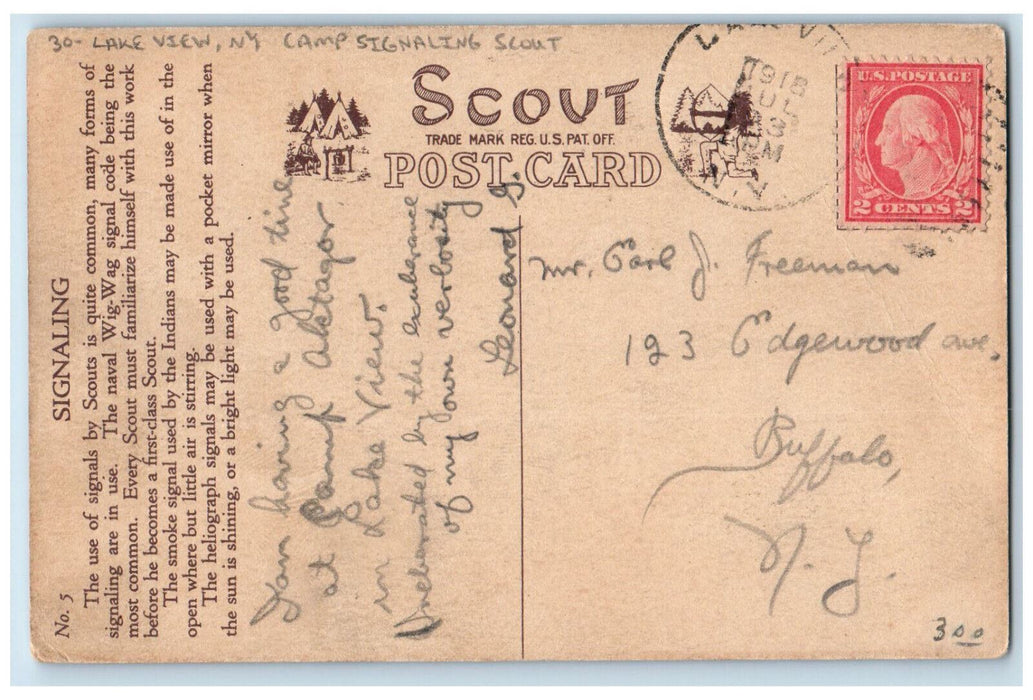 30- LAKE VIEW, NY CAMP SIGNALING SCOUT
SCOUT
TRADE MARK REG. U.S. PAT. OFF.
POST CARD
LAKE VIEW
1918
JUL
30
PM
N.Y.
U.S. POSTAGE
2 CENTS 2
No. 5
SIGNALING
The use of signals by Scouts is quite common, many forms of
signaling are in use. The naval Wig-Wag signal code being the
most common. Every Scout must familiarize himself with this work
before he becomes a first-class Scout.
The smoke signal used by the Indians may be made use of in the
open where but little air is stirring.
The heliograph signals may be used with a pocket mirror when
the sun is shining, or a bright light may be used.
I am having a good time
at Camp
in Lake View.
Inebriated by the exuberance
of my own verbosity
Leonard G.
Mr. Carl J. Freeman
123 Edgewood ave.
Buffalo,
N. Y.
3 00